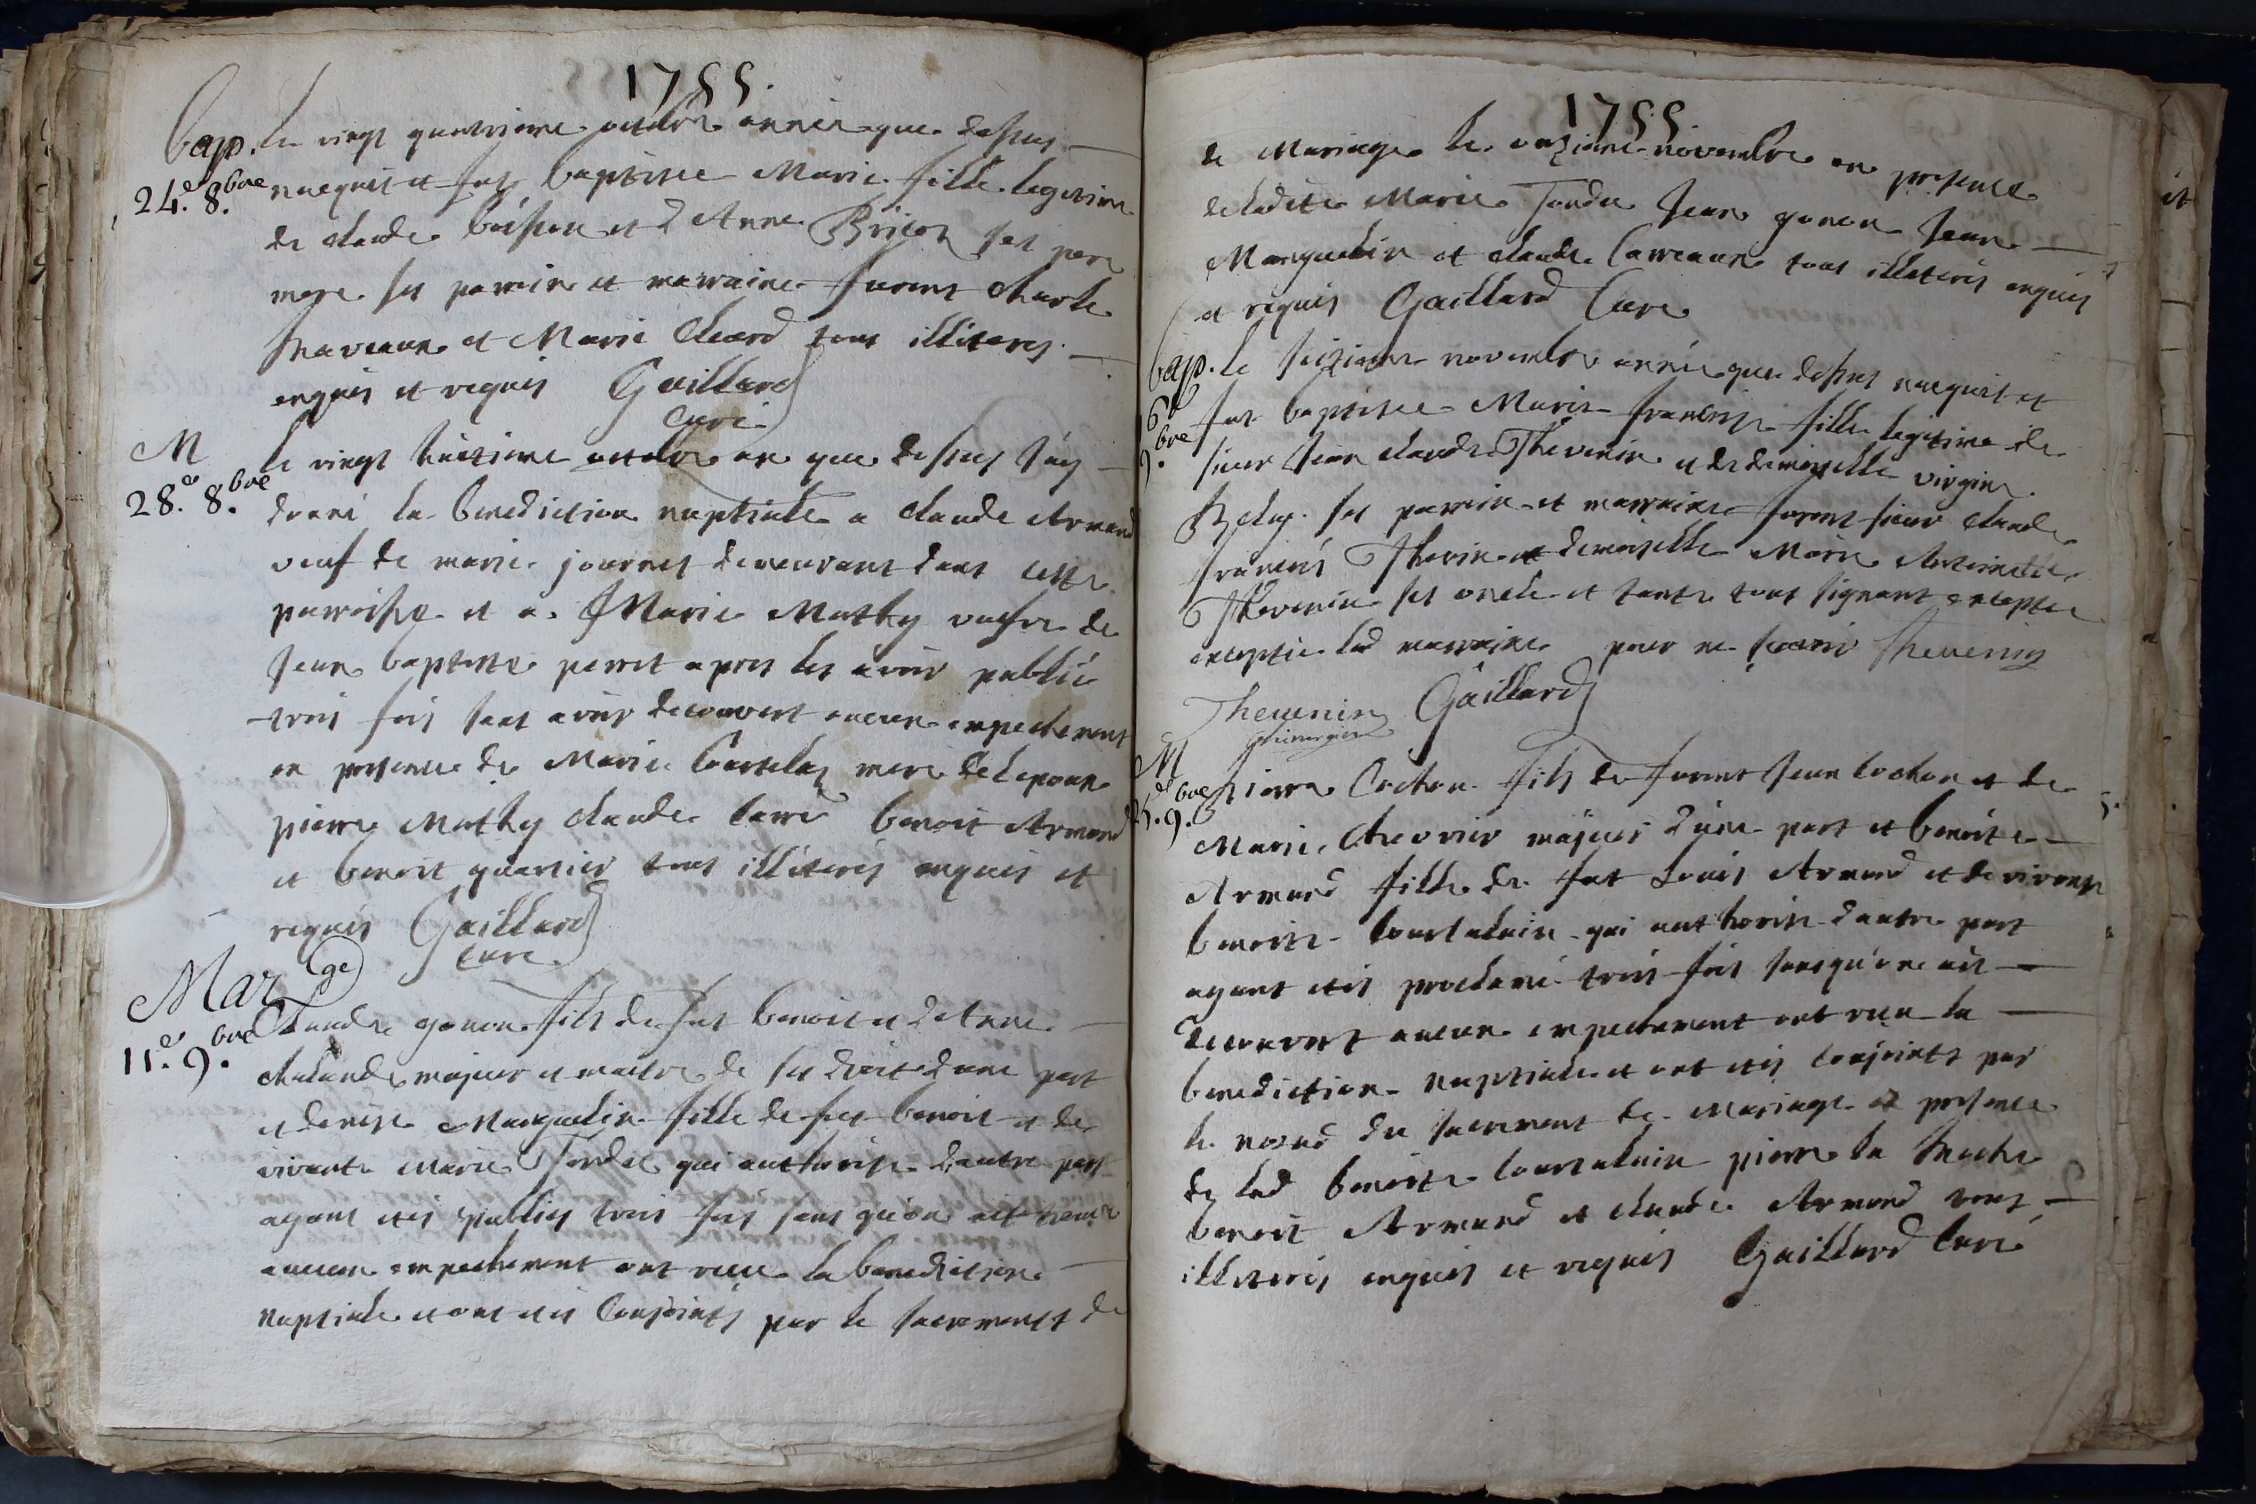 1755.
Bap. Le vingt quatrieme octobre année que dessus
24.e 8.bre nacquit et fut baptisée Marie fille legitime
de claude et d'Anne ses pere
mere ses parrein et marraine furent charle
et Marie tous illiterés
enquis et requis Gaillard
curé
M le vingt huitieme octobre an que dessus j'ay
28.e 8.bre donné la benediction nuptiale a claude Armand
veuf de marie journet demeurant dans cette
parroisse et a Marie Mathy veufve de
jean baptiste perret apres les avoir publié
trois fois sans avoir decouvert aucun empechement
en presence de Marie mere de lepouse
pierre Mathy claude benoit Armand
et benoit quartier tous illiterés enquis et
requis Gaillard
curé
Mar.ge
claude gonon fils de fut benoit et d'Anne
11.e 9.bre
chalande majeur et maitre de ses droit d'une part
et denise Marquelin fille de fut benoit et de
vivante Marie Tondu qui authorise d'autre part
ayant etés publiés trois fois sans qu'on ait
aucun empechement ont recu la benediction
nuptiale et ont etés conjoints par le sacrement de
1755
de Mariage le onzieme novembre en presence
de ladite Marie Tondu jean gonon jean
Marquelin et claude tous illiterés enquis
et requis Gaillard Curé
Bap. le seizieme novembre année que dessus nacquit et
fut baptisée Marie francoise fille legitime de
sieur jean claude Thevenin et de demoiselle virginie
ses parrein et marraine furent sieur claude
francois et demoiselle Marie Antoinette
Thevenin ses oncle et tante tous signant exceptée
exceptée lad marraine pour ne scavoir Thevenin
Thevenin Gaillard
chirurgien
M
pierre Cochon fils de furent jean cochon et de
.9.bre
Marie Chevrier majeur d'une part et benoite
Armand fille de fut Louis Armand et de vivante
benoite qui authorise d'autre part
ayant etés proclamé trois fois sans qu'on ait
decouvert aucun empechement ont recu la
benediction nuptiale et ont etés conjoints par
le noeud du sacrement de Mariage presence
de lad benoite pierre la
benoit Armand et claude Armand tous
illiterés enquis et requis Gaillard Curé